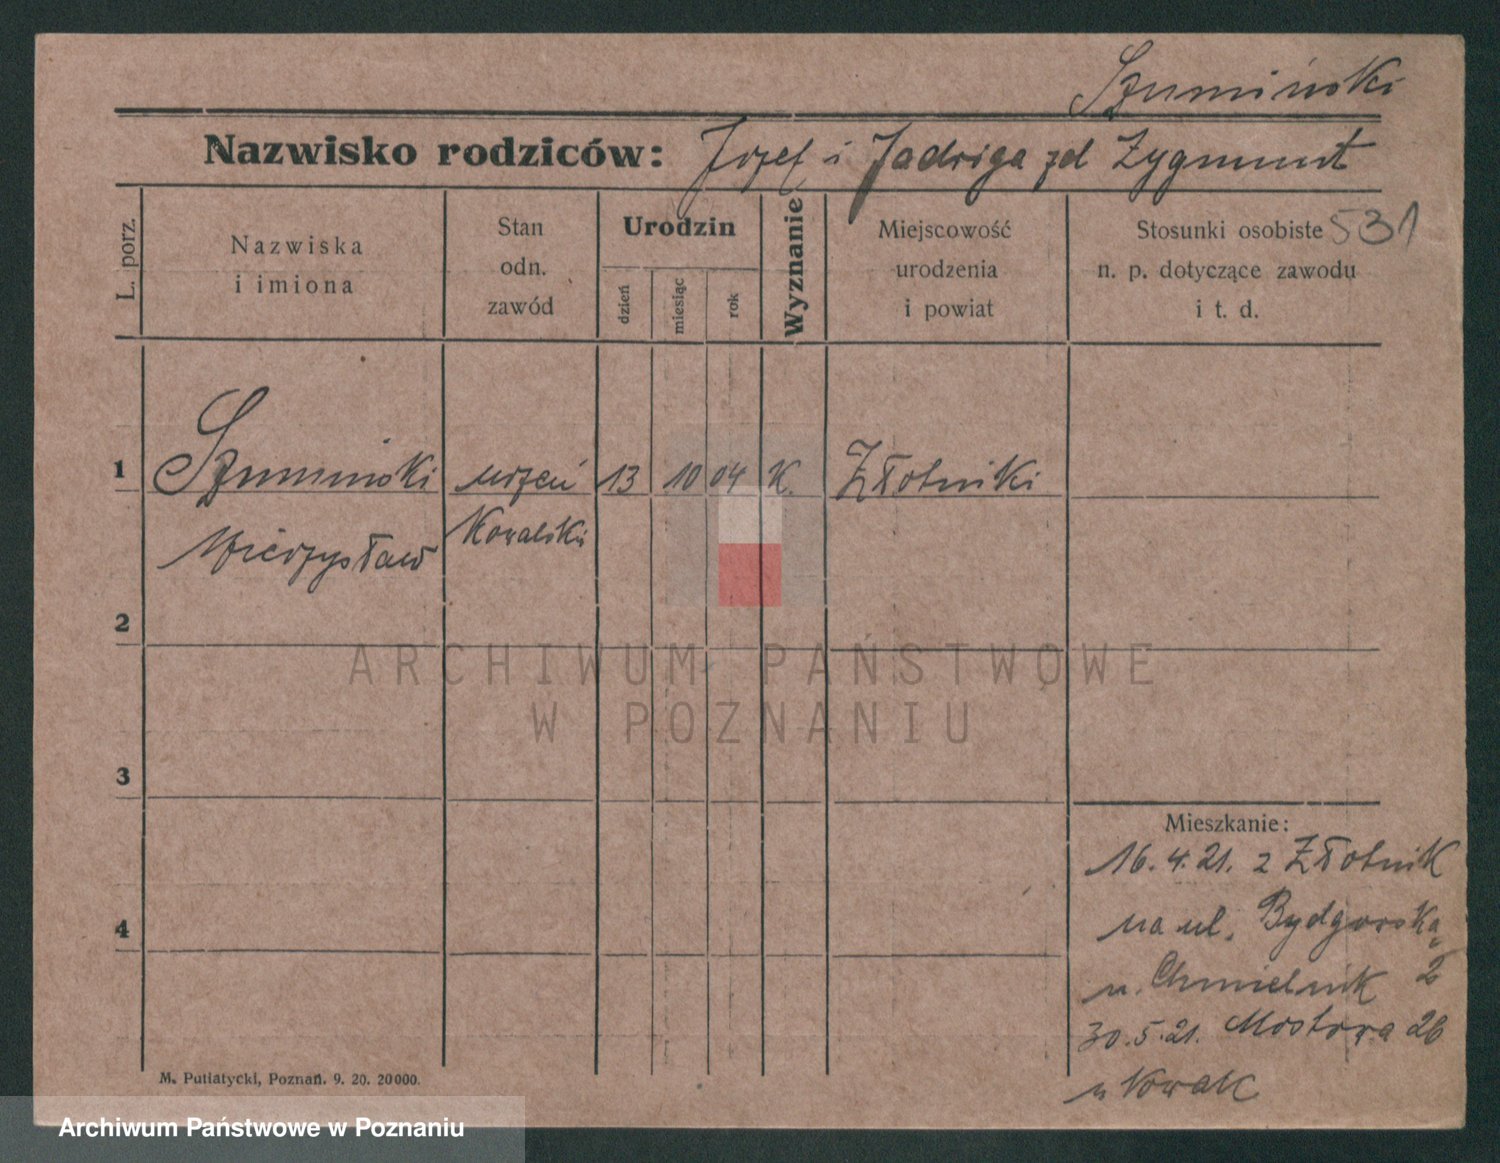 Szumiński
Nazwisko rodziców: Józef i Jadwiga zd Zygmunt
531
L. porz.
Nazwiska
i imiona
Stan
odn.
zawód
Urodzin
dzień
miesiąc
rok
Wyznanie
Miejscowość
urodzenia
i powiat
Stosunki osobiste
n. p. dotyczące zawodu
i t. d.
1 Szumiński uczeń 13 10 04 K. Złotniki
Mieczysław Kowalski
2
3
4
Mieszkanie:
16.4.21. z Złotnik
na ul. Bydgorska
u. Chmielnik 2
30.5.21. Mostowa 26
u Nowak
M. Putiatycki, Poznań. 9. 20. 20000.
ARCHIWUM PAŃSTWOWE
W POZNANIU
Archiwum Państwowe w Poznaniu